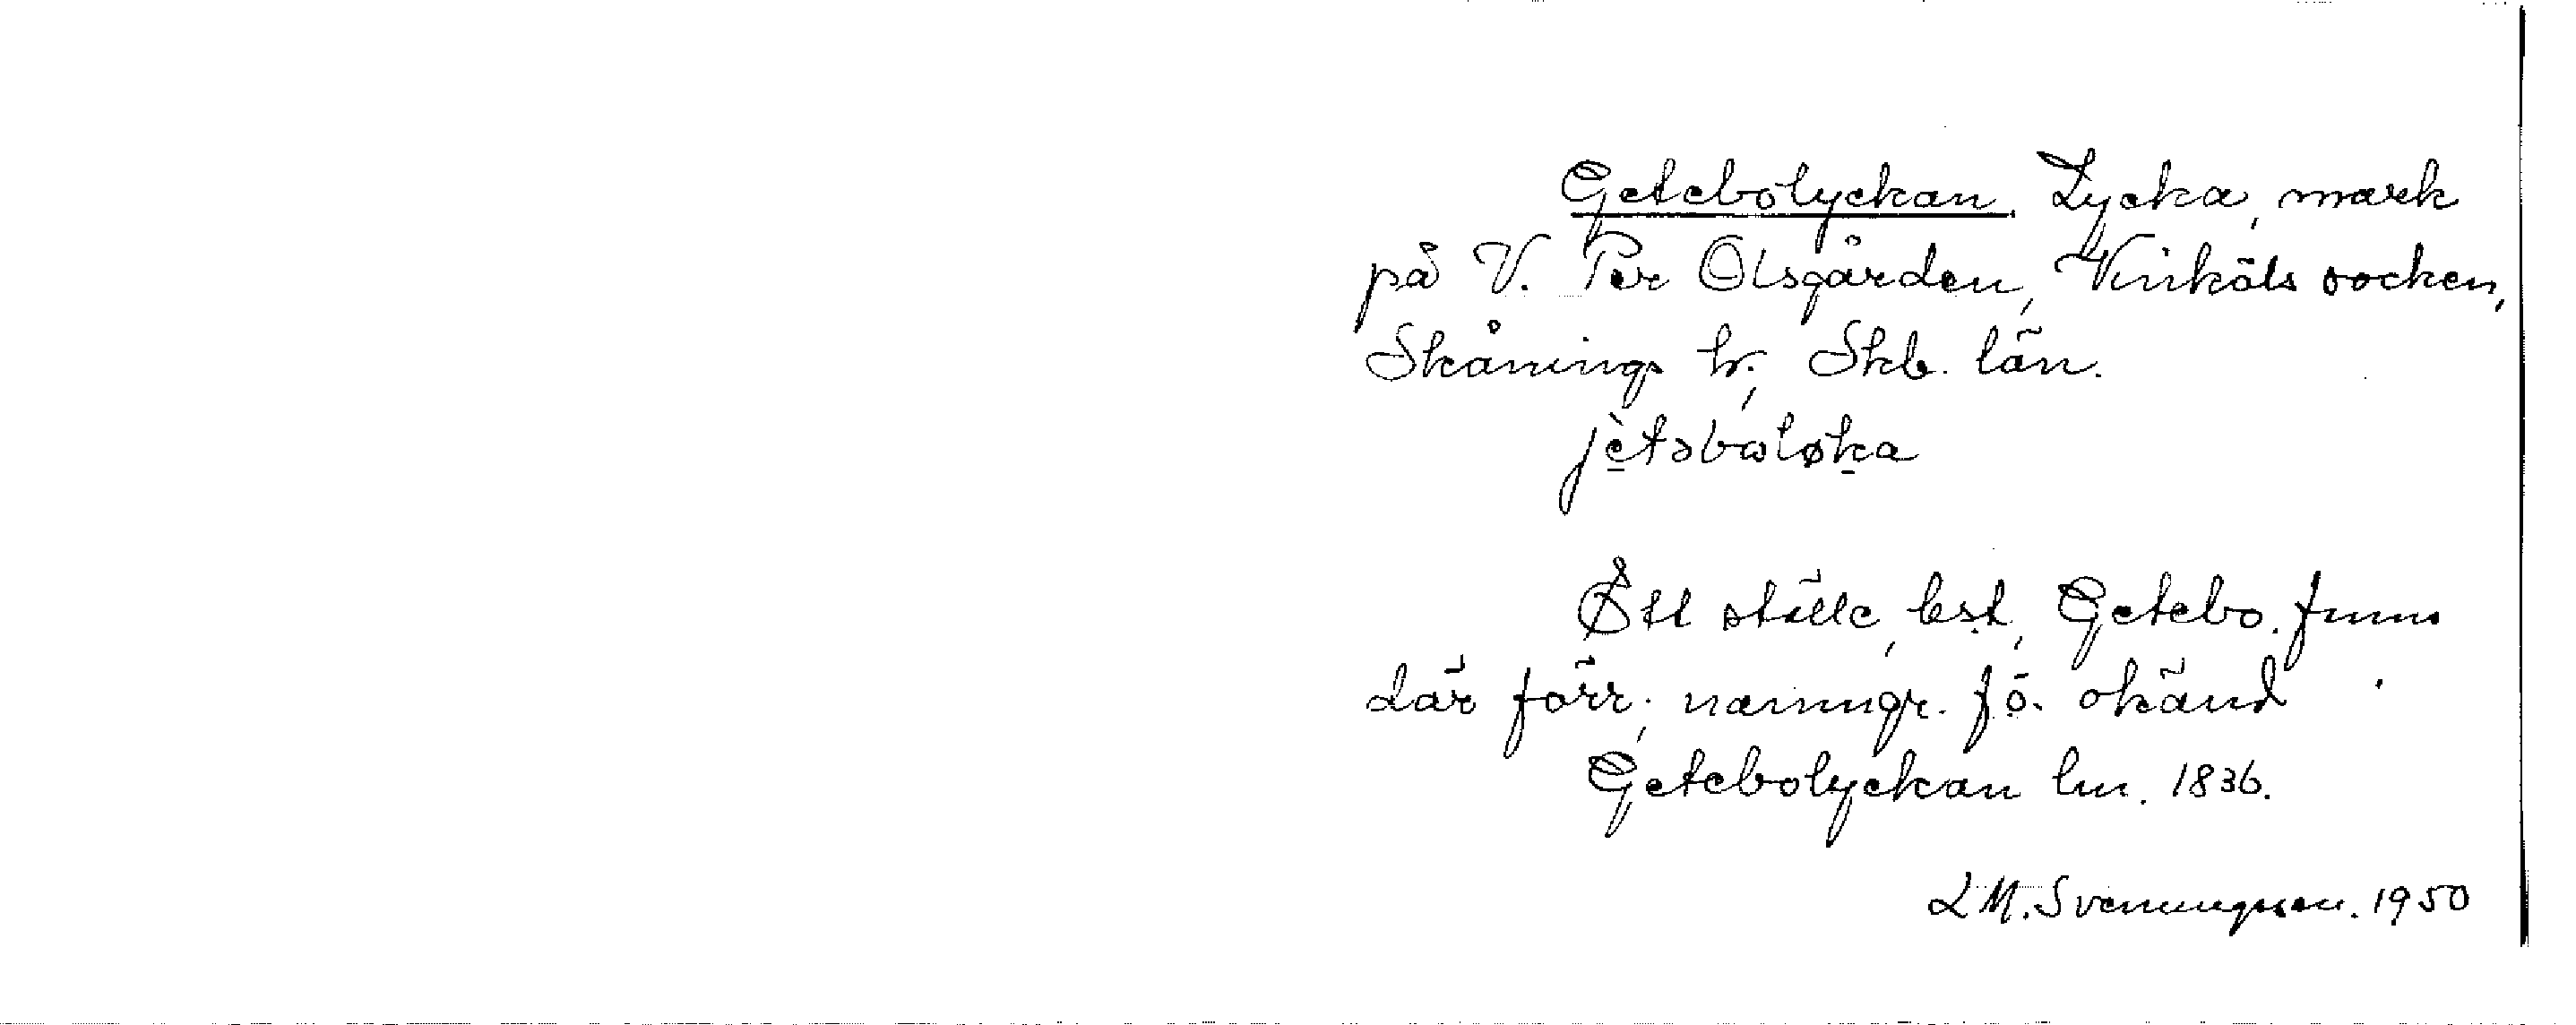 Getebolyckan. Lycka, mark
på V. Per Olsgården, Vinköls socken,
Skånings hr., Skb. län.
jètəbωløka
Ett ställe, best., Getebo. fanns
där förr; namngr. f.ö. okänd
Getebolyckan lm. 1836.
L M. Svenungsson. 1950